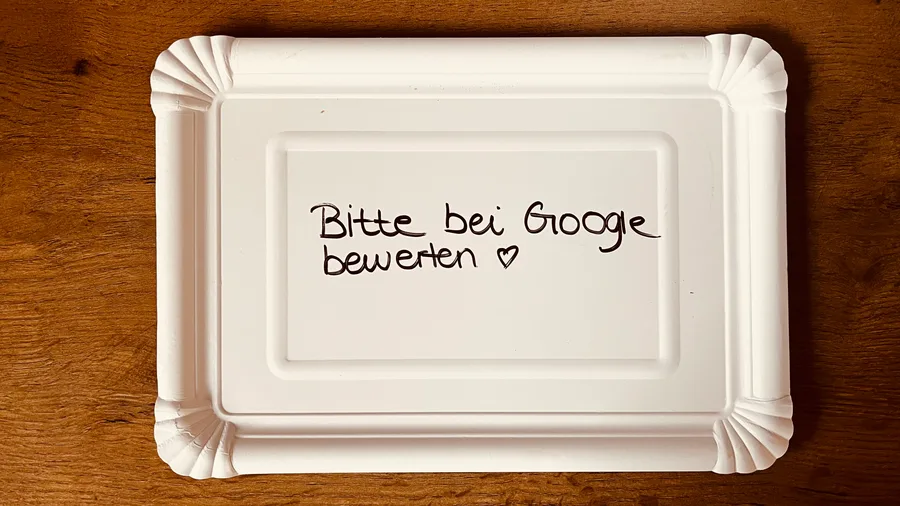 Bitte bei Google
bewerten ♡